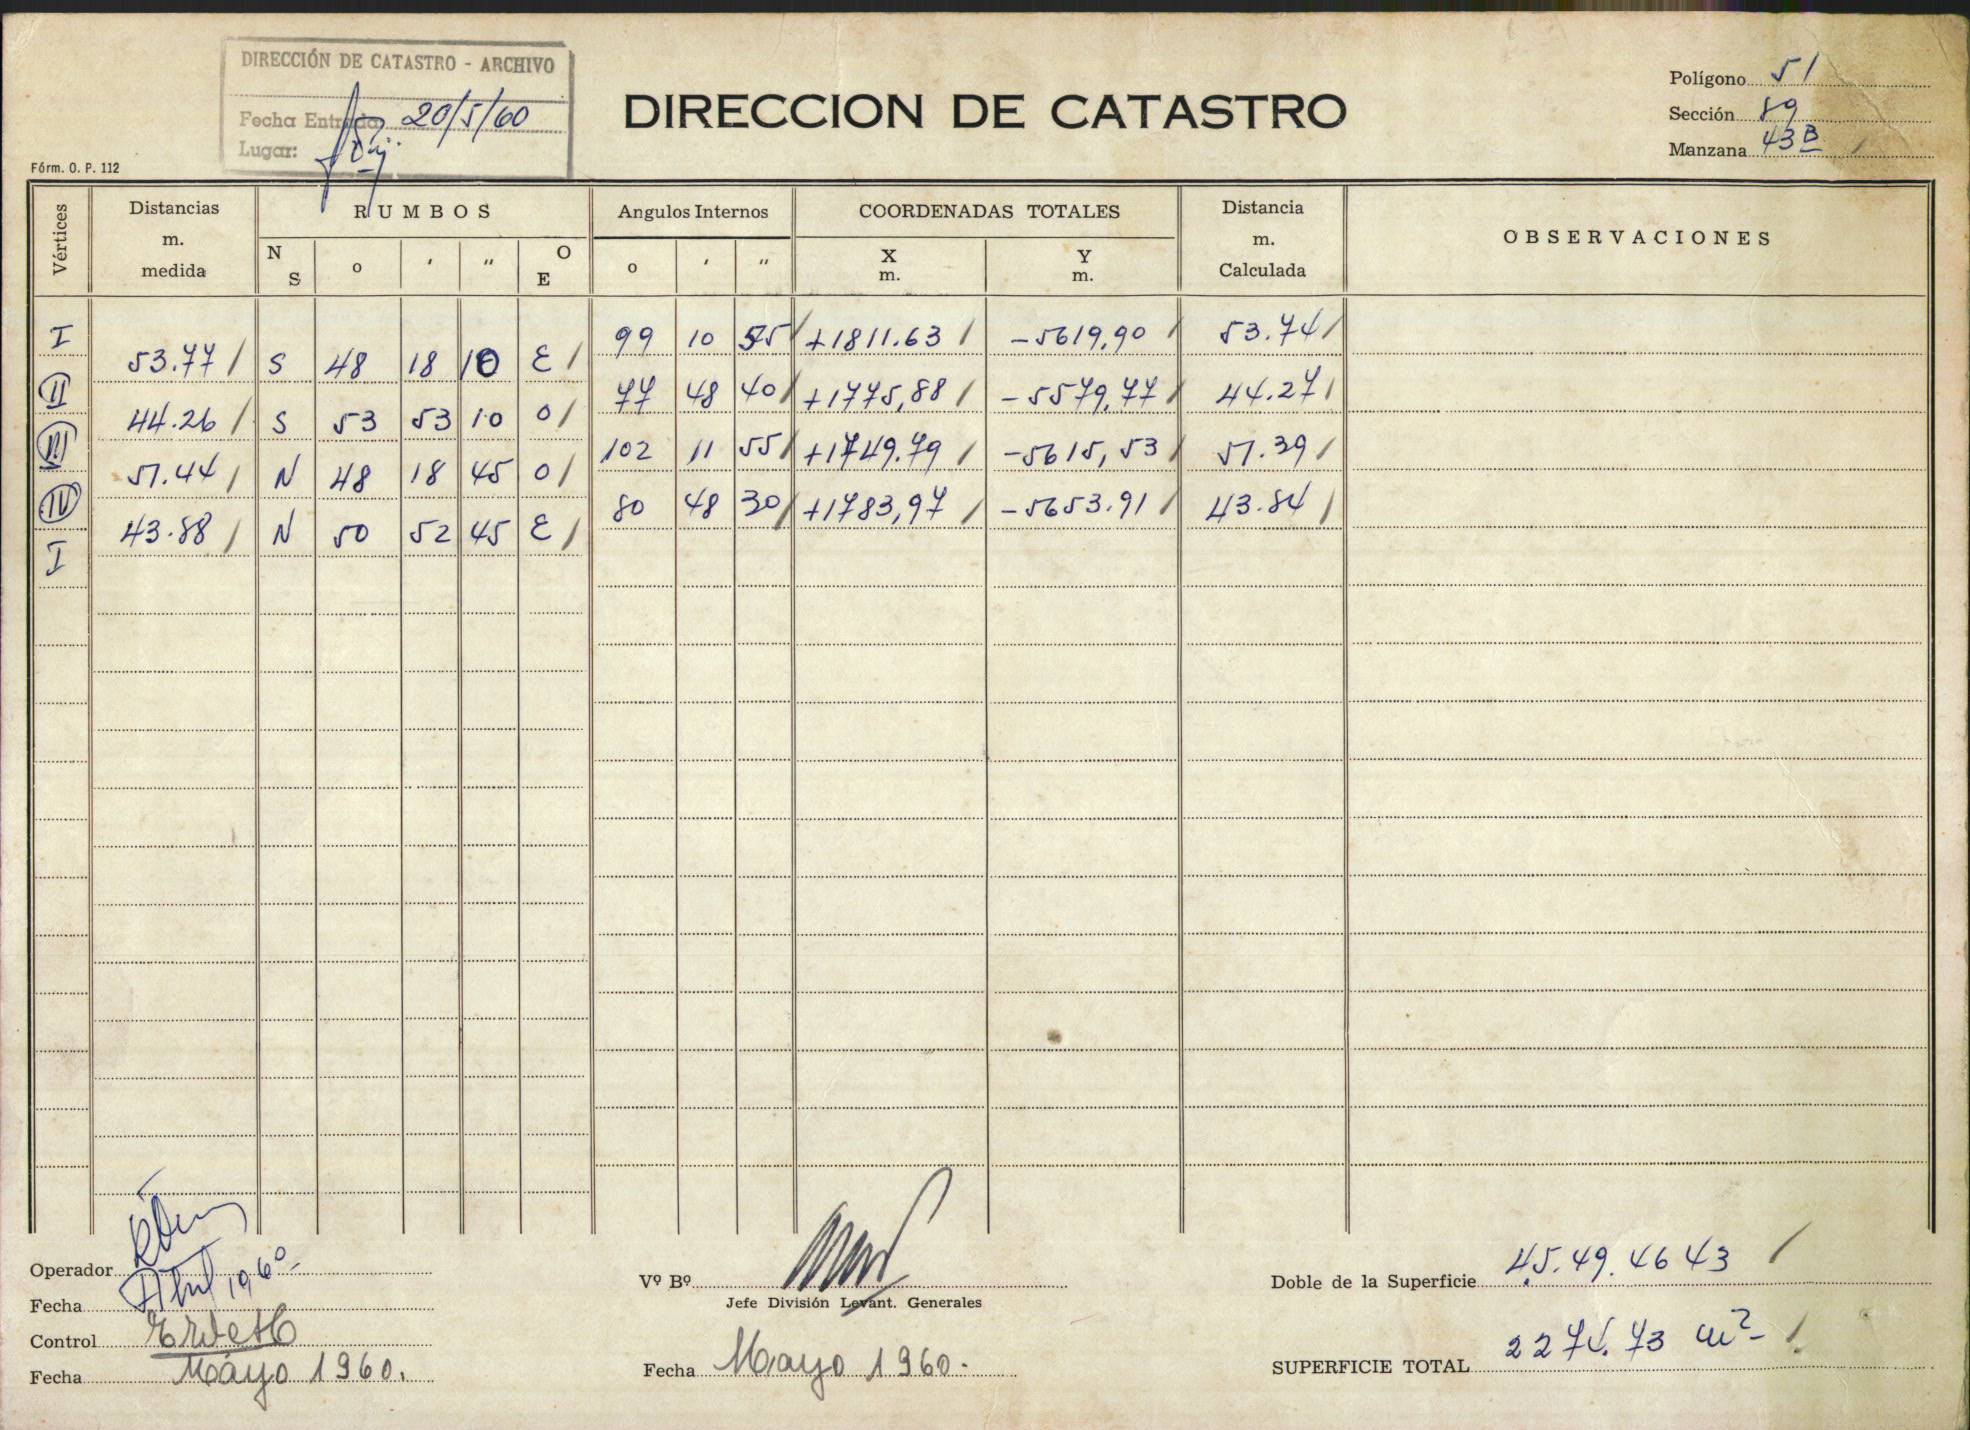 DIRECCIÓN DE CATASTRO - ARCHIVO
Fecha Entrada 20/5/60
Lugar:
Fórm. O. P. 112
DIRECCION DE CATASTRO
Polígono 51
Sección 89
Manzana 43B
Vértices Distancias m. medida RUMBOS N S o ' " O E Angulos Internos o ' " COORDENADAS TOTALES X m. Y m. Distancia m. Calculada OBSERVACIONES
I 99 10 55 +1811.63 -5619,90 53.74
53.77 S 48 18 10 E
II 77 48 40 +1775,88 -5579,77 44.27
44.26 S 53 53 10 O
III 102 11 55 +1749.79 -5615,53 51.39
51.44 N 48 18 45 O
IV 80 48 30 +1783,97 -5653.91 43.84
43.88 N 50 52 45 E
I
Operador
Fecha Abril 1960
Control
Fecha Mayo 1960.
Vº Bº
Jefe División Levant. Generales
Fecha Mayo 1960.
Doble de la Superficie 45.49.4643
SUPERFICIE TOTAL 2274.73 m2